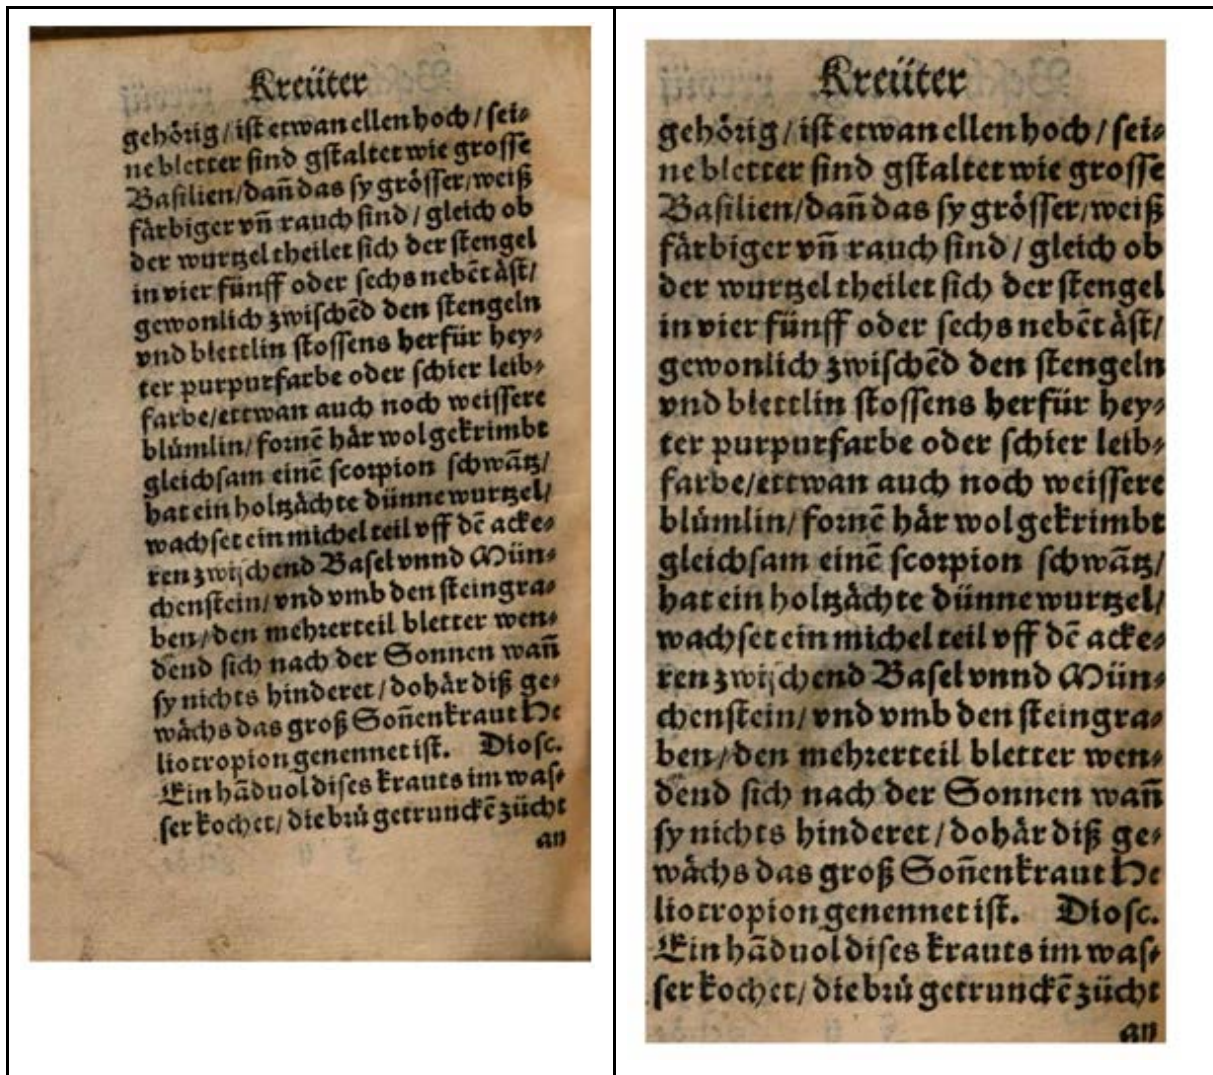 Kreüter
gehörig / ist etwan ellen hoch / sei⸗
ne bletter sind gstaltet wie grosse
Basilien/dañ das sy grösser/weiß
fårbiger vñ rauch sind / gleich ob
der wurtzel theilet sich der stengel
in vier fünff oder sechs nebēt åst/
gewonlich zwischēd den stengeln
vnd blettlin stossens herfür hey⸗
ter purpurfarbe oder schier leib⸗
farbe/ettwan auch noch weissere
blůmlin/fornē hår wol gekrimbt
gleichsam einē scorpion schwātz/
hat ein holtzåchte dünne wurtzel/
wachset ein michel teil vff dē acke⸗
ren zwischend Basel vnnd Mün⸗
chenstein/ vnd vmb den steingra⸗
ben/den mehrerteil bletter wen⸗
dend sich nach der Sonnen wañ
sy nichts hinderet / dohår diß ge⸗
wåchs das groß Soñenkraut He
liotropion genennet ist. Diosc.
Ein hāduol dises krauts im was⸗
ser kochet/ die brů getrunckē zücht
an
Kreüter
gehörig / ist etwan ellen hoch / sei⸗
ne bletter sind gstaltet wie grosse
Basilien/dañ das sy grösser/weiß
fårbiger vñ rauch sind / gleich ob
der wurtzel theilet sich der stengel
in vier fünff oder sechs nebēt åst/
gewonlich zwischēd den stengeln
vnd blettlin stossens herfür hey⸗
ter purpurfarbe oder schier leib⸗
farbe/ettwan auch noch weissere
blůmlin/fornē hår wol gekrimbt
gleichsam einē scorpion schwātz/
hat ein holtzåchte dünne wurtzel/
wachset ein michel teil vff dē acke⸗
ren zwischend Basel vnnd Mün⸗
chenstein/ vnd vmb den steingra⸗
ben/den mehrerteil bletter wen⸗
dend sich nach der Sonnen wañ
sy nichts hinderet / dohår diß ge⸗
wåchs das groß Soñenkraut He
liotropion genennet ist. Diosc.
Ein hāduol dises krauts im was⸗
ser kochet/ die brů getrunckē zücht
an